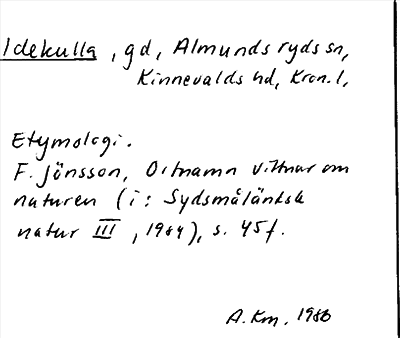 Idekulla, gd, Almundsryds sn,
Kinnevalds hd, Kron. l,
Etymologi.
F. Jönsson, Ortnamn vittnar om
naturen (i: Sydsmåländsk
natur III, 1984), s. 45f.
A. Km. 1986